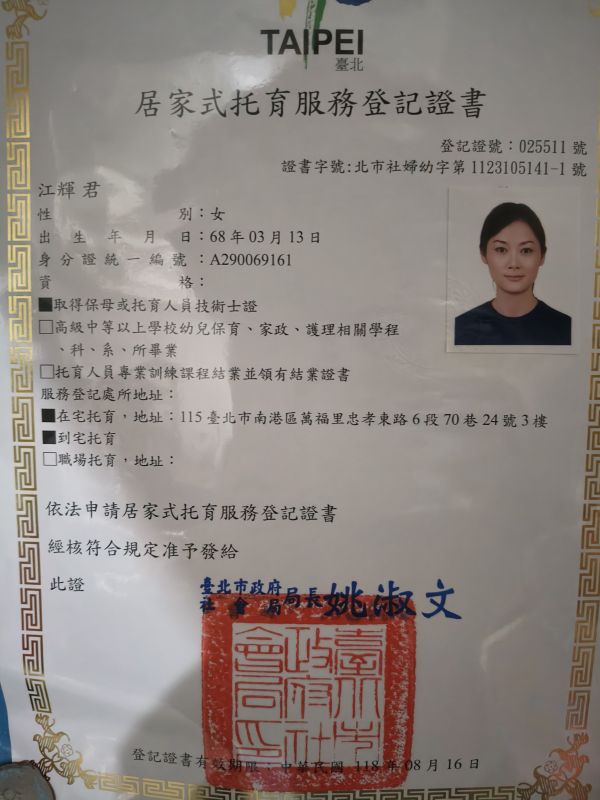 TAIPEI
臺北
居家式托育服務登記證書
登記證號：025511 號
證書字號:北市社婦幼字第 1123105141-1 號
江輝君
性別：女
出生年月日：68 年 03 月 13 日
身分證統一編號：A290069161
資格：
■取得保母或托育人員技術士證
□高級中等以上學校幼兒保育、家政、護理相關學程
、科、系、所畢業
□托育人員專業訓練課程結業並領有結業證書
服務登記處所地址：
■在宅托育，地址：115 臺北市南港區萬福里忠孝東路 6 段 70 巷 24 號 3 樓
■到宅托育
□職場托育，地址：
依法申請居家式托育服務登記證書
經核符合規定准予發給
此證
臺北市政府
社會局局長姚淑文
臺北市
政府社
會局印
登記證書有效期限：中華民國 118 年 08 月 16 日